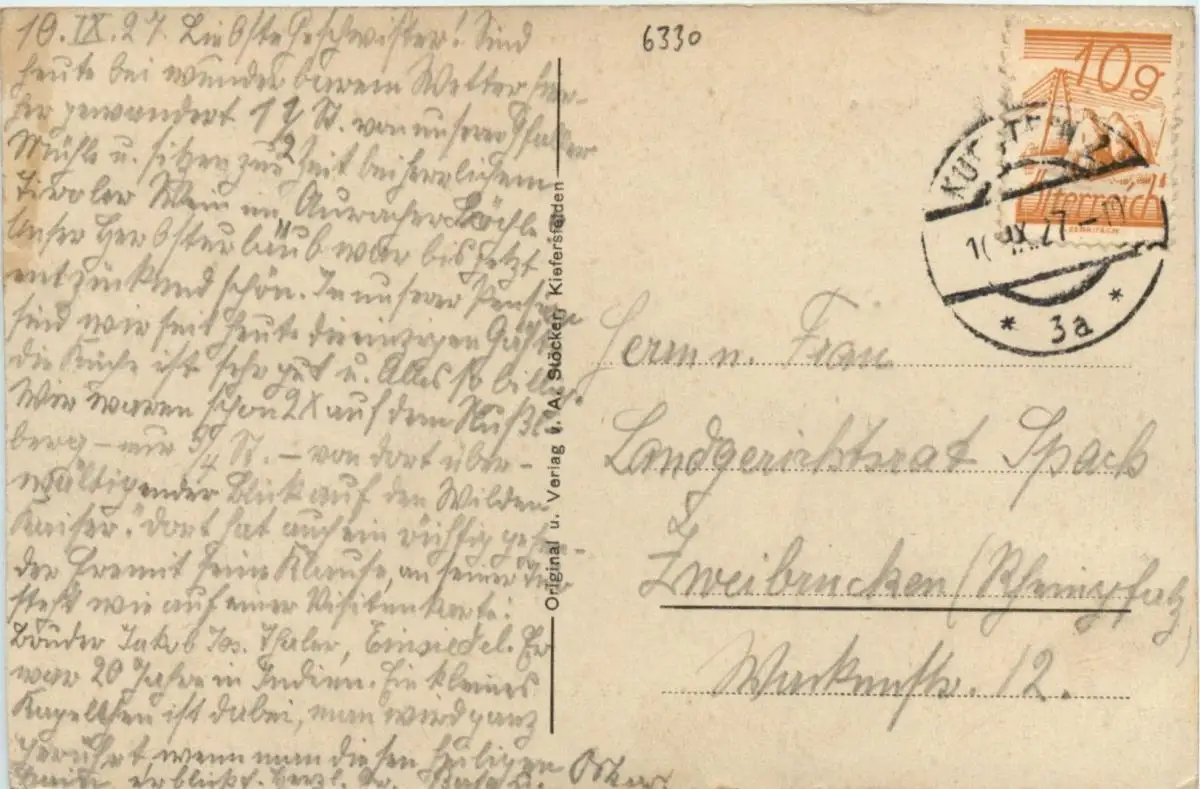 10. IX. 27. Liebste Geschwister! Sind
heute bei wunderbarem Wetter hier-
her gewandert 1 1/2 St. von unserer Pfaller
Mühle u. sitzen zur Zeit bei herrlichem
Tiroler Wein im Auracher Löchle
Unser Herbsturläub war bis jetzt
entzückend schön. In unserer Pension
sind wir seit heute die einzigen Gäste
die Küche ist sehr gut u. Alles so billig.
Wir waren schon 2X auf dem Nußl-
berg – nur 5/4 St. – von dort über-
wältigender Blick auf den Wilden
Kaiser. Dort hat auch ein richtig
der Eremit seine Klause, an seiner Tür
steht wie auf einer Visitenkarte:
Bruder Jakob Jos. Thaler, Einsiedel. Er
war 20 Jahre in Indien. Ein kleines
Kapellchen ist dabei, man wird ganz
gerührt, wenn man diesen heiligen
erblickt. Herzl. Gr. Oskar
6330
Original u. Verlag v. A. Stöcker, Kiefersfelden
10g
Österreich
KUFSTEIN
10 IX 27
* 3a *
Herrn u. Frau
Landgerichtsrat Spach
Zweibrücken (Rheinpfalz)
12.